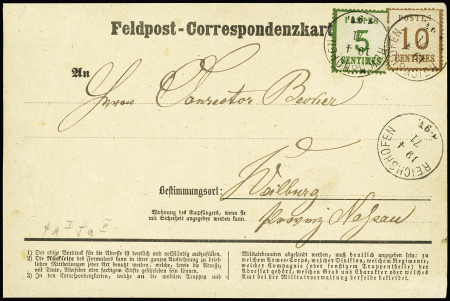 Feldpost-Correspondenzkart
POSTES
5
CENTIMES
POSTES
10
CENTIMES
An
Herrn Conrector Becker
REICHSHOFEN
19 4
71
Bestimmungsort: Weilburg
Wohnung des Empfängers, wenn sie
mit Sicherheit angegeben werden kann.
Provinz Nassau
1) Der obige Vordruck für die Adresse ist deutlich und vollständig auszufüllen.
2) Die Rückseite des Formulars kann in ihrer ganzen Ausdehnung zu brief-
lichen Mittheilungen jeder Art benutzt werden, welche, sowie die Adresse,
mit Tinte, Bleifeder oder farbigem Stifte geschrieben sein können.
3) In den Correspondenzkarten, welche an die mobilen Truppen und
Militairbeamten abgesandt werden, muß deutlich angegeben sein, zu
welchem Armee-Corps, welcher Division, welchem Regimente,
welcher Compagnie (oder sonstigem Truppentheile) der
Adressat gehört, welchen Grad und Charakter oder welches
Amt bei der Militairverwaltung derselbe bekleidet.